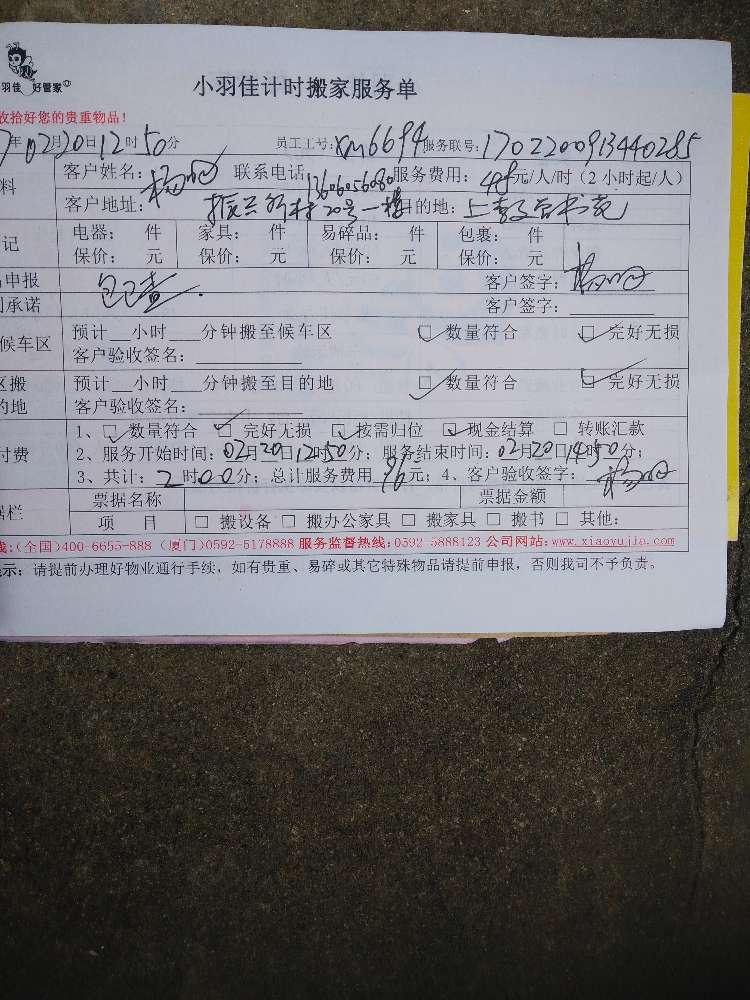 羽佳 好管家
小羽佳计时搬家服务单
收拾好您的贵重物品！
7年02月20日12时50分 员工工号：XM6694 服务联号：1702200913440285
料 客户姓名：杨 联系电话：13606056080 服务费用：48元/人/时（2小时起/人）
客户地址：振兴新村20号一楼 目的地：上 书苑
记 电器： 件 家具： 件 易碎品： 件 包裹： 件
保价： 元 保价： 元 保价： 元 保价： 元
申报 客户签字：杨
承诺 客户签字：
候车区 预计 小时 分钟搬至候车区 ☑数量符合 ☑完好无损
客户验收签名：
区搬 预计 小时 分钟搬至目的地 ☑数量符合 ☑完好无损
的地 客户验收签名：
1、☑数量符合 ☑完好无损 ☑按需归位 ☑现金结算 □转账汇款
付费 2、服务开始时间：02月20日12时50分；服务结束时间：02月20日14时50分；
3、共计：2时00分；总计服务费用96元；4、客户验收签字：杨
票据名称 票据金额
据栏 项 目 □搬设备 □搬办公家具 □搬家具 □搬书 □其他：
线：(全国)400-6655-888 (厦门)0592-5178888 服务监督热线：0592-5888123 公司网站：www.xiaoyujia.com
示：请提前办理好物业通行手续，如有贵重、易碎或其它特殊物品请提前申报，否则我司不予负责。